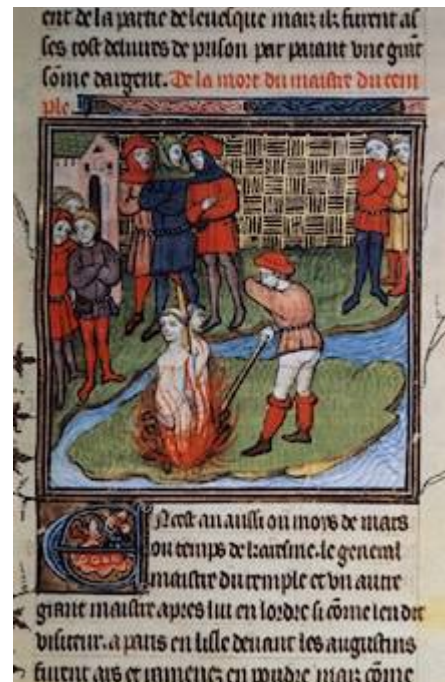 ent de la partie de leuesque mais ilz furent as
ses tost deliures de prison par paiant vne grāt
sōme dargent. De la mort du maistre du tem
ple
En cest an aussi ou moys de mars
ou temps de karesme. le general
maistre du temple et vn autre
grant maistre apres lui en lordre si cōme len dit
visiteur. a paris en lille deuant les augustins
furent ars et ramenez en poudre mais cōme